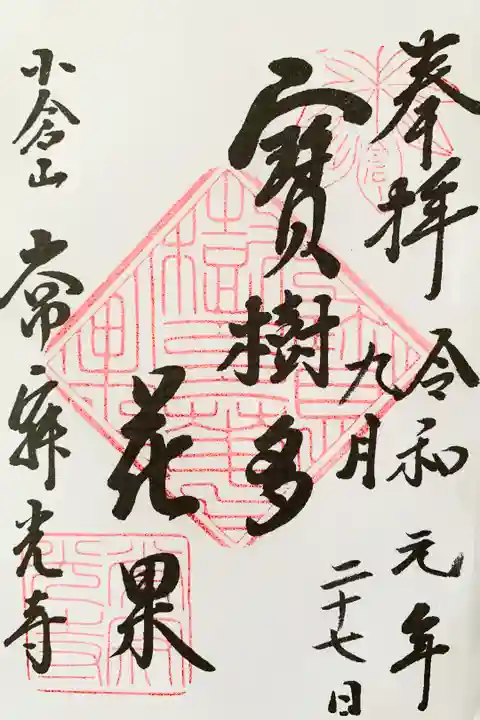 奉拝
令和元年
九月
二十七日
寶樹多
花果
小倉山 常寂光寺